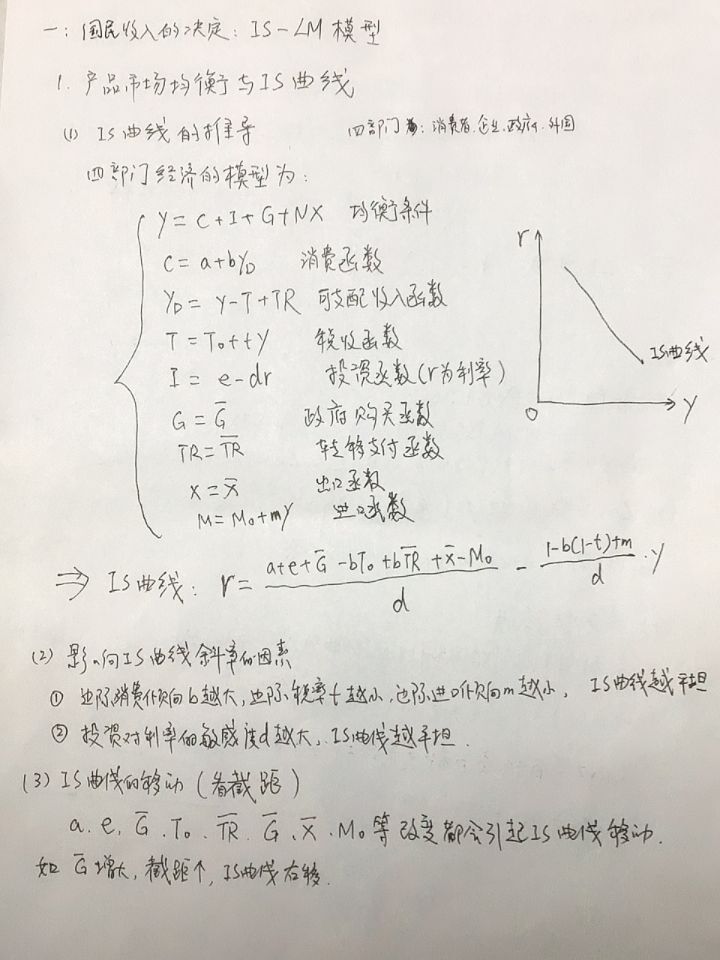 一：国民收入的决定：IS-LM模型
1. 产品市场均衡与IS曲线
(1) IS曲线的推导 四部门：消费者.企业.政府.外国
四部门经济的模型为：
Y = C+I+G+NX 均衡条件
C = a+bY_D 消费函数
Y_D = Y-T+TR 可支配收入函数
T = T₀+tY 税收函数
I = e-dr 投资函数(r为利率)
G = G̅ 政府购买函数
TR = T̅R̅ 转移支付函数
X = X̅ 出口函数
M = M₀+mY 进口函数
r
IS曲线
O
Y
⇒ IS曲线: r = (a+e+G̅-bT₀+bT̅R̅+X̅-M₀)/d - (1-b(1-t)+m)/d · Y
(2) 影响IS曲线斜率的因素
① 边际消费倾向b越大,边际税率t越小,边际进口倾向m越小, IS曲线越平坦
② 投资对利率的敏感度d越大,IS曲线越平坦.
(3) IS曲线的移动 (看截距)
a. e. G̅. T₀. T̅R̅. G̅. X̅. M₀等改变都会引起IS曲线移动.
如G̅增大,截距↑,IS曲线右移.